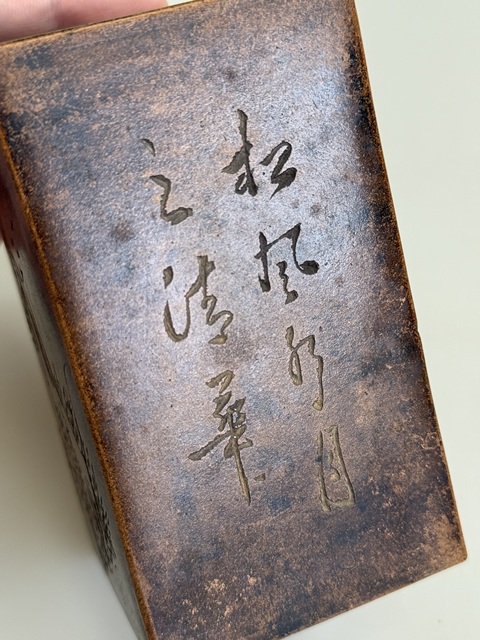 松风水月
之清華